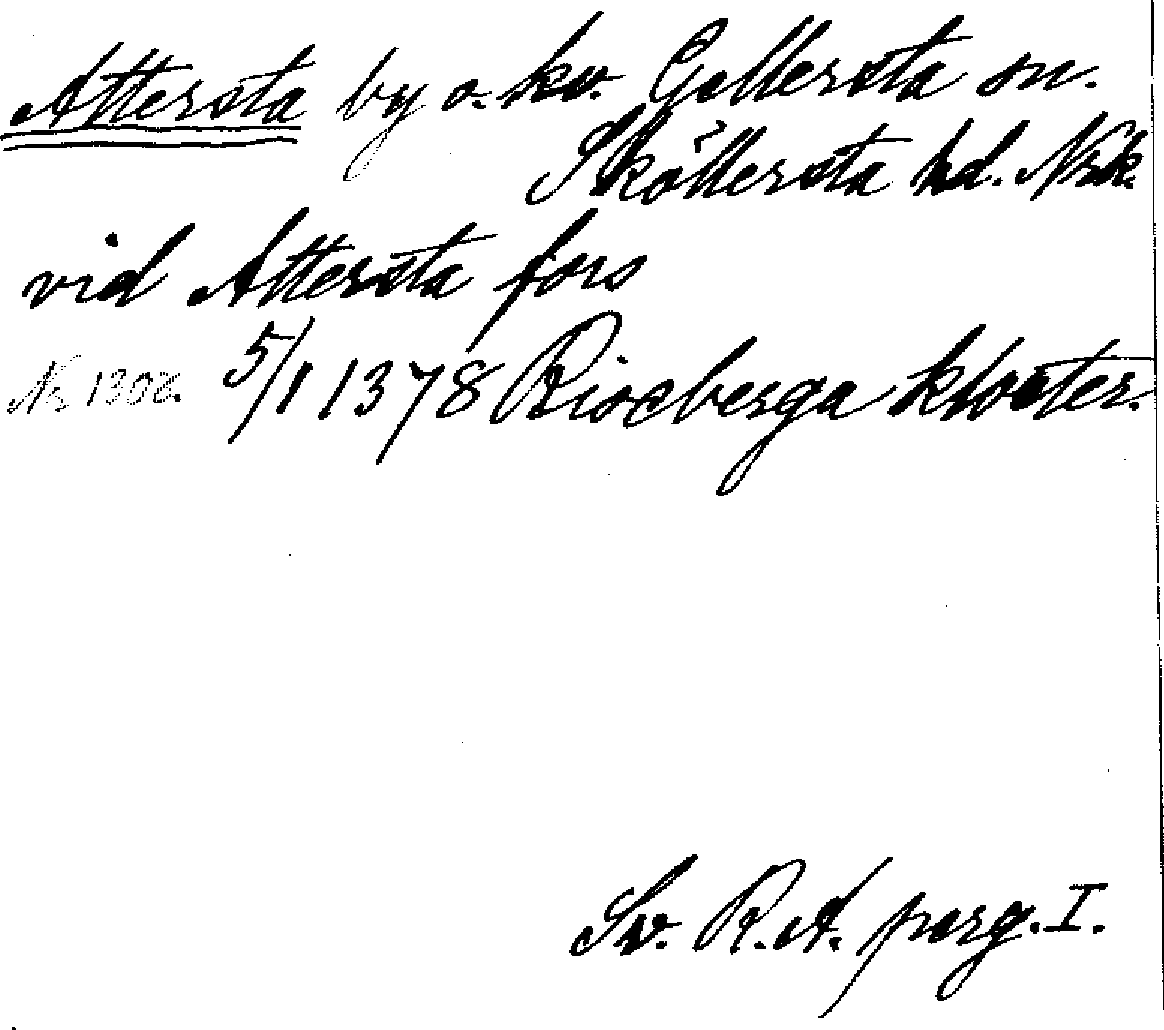 Attersta by o. kv. Gällersta sn.
Sköllersta hd. Nrk.
vid Attersta fors
Nr 1302. 5/1 1378 Riseberga kloster.
Sv. R.A. perg. I.